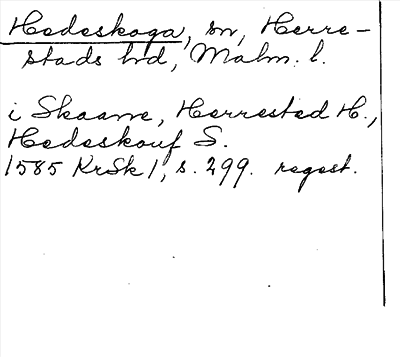 Hedeskoga, sn, Herre-
stads hd, Malm. l.
i Skaane, Herrested H.,
Hedeskouf S.
1585 KrSk 1, s. 299. regest.